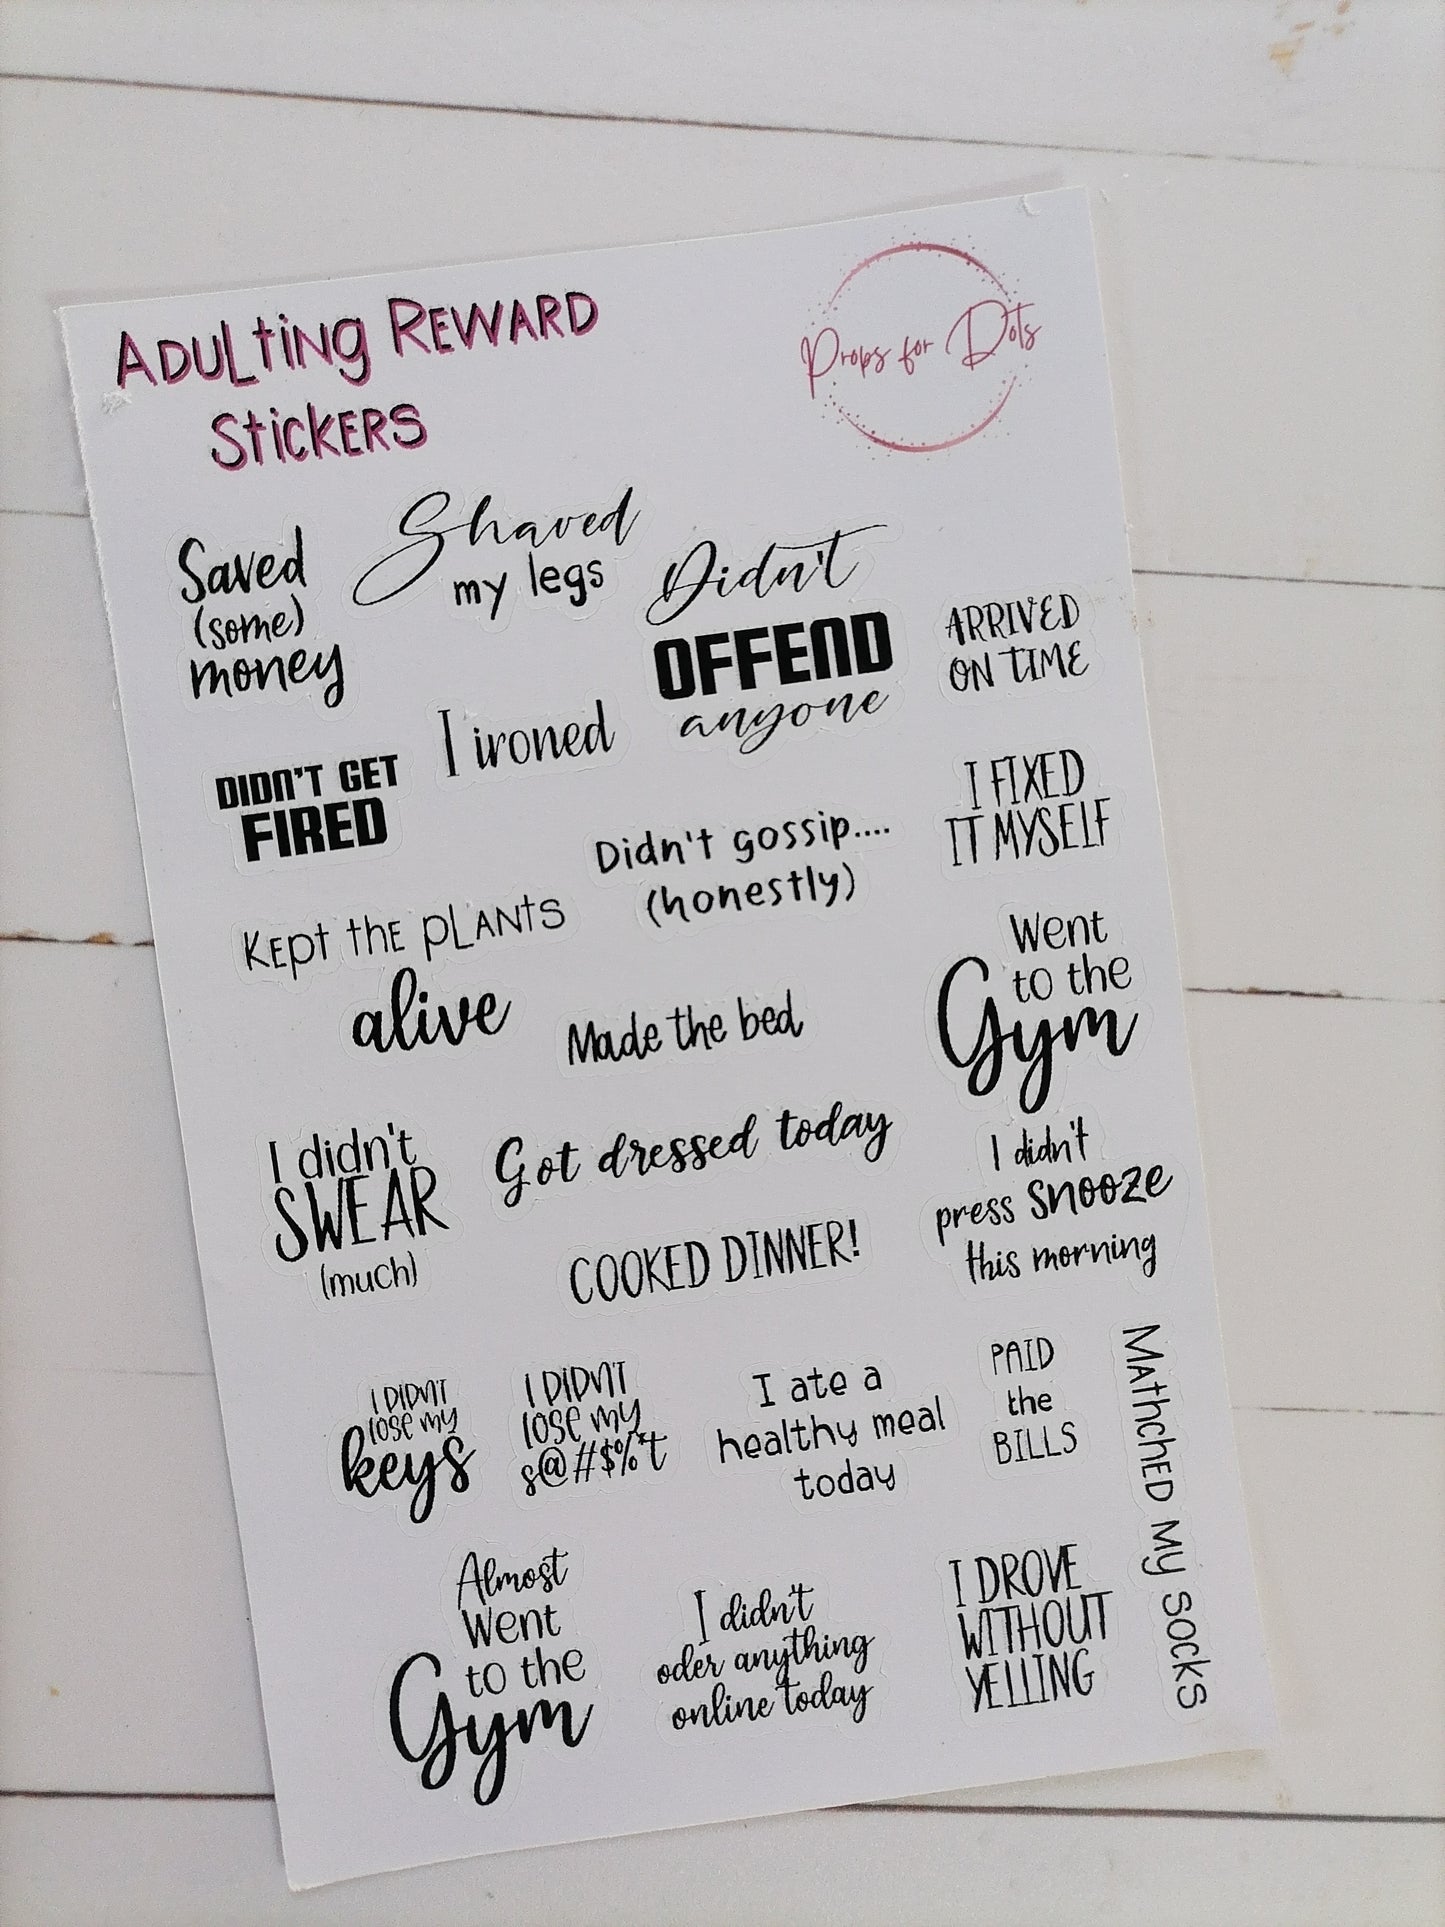 ADULTING REWARD
STICKERS
Props for Dots
Saved
(some)
money
Shaved
my legs
Didn't
OFFEND
anyone
ARRIVED
ON TIME
DIDN'T GET
FIRED
I ironed
Didn't gossip....
(honestly)
I FIXED
IT MYSELF
KEPT THE PLANTS
alive
Made the bed
Went
to the
Gym
I didn't
SWEAR
(much)
Got dressed today
COOKED DINNER!
I didn't
press snooze
this morning
I DIDN'T
lose my
keys
I DIDN'T
lose my
s@#$%*t
I ate a
healthy meal
today
PAID
the
BILLS
MATHCHED MY SOCKS
Almost
Went
to the
Gym
I didn't
oder anything
online today
I DROVE
WITHOUT
YELLING